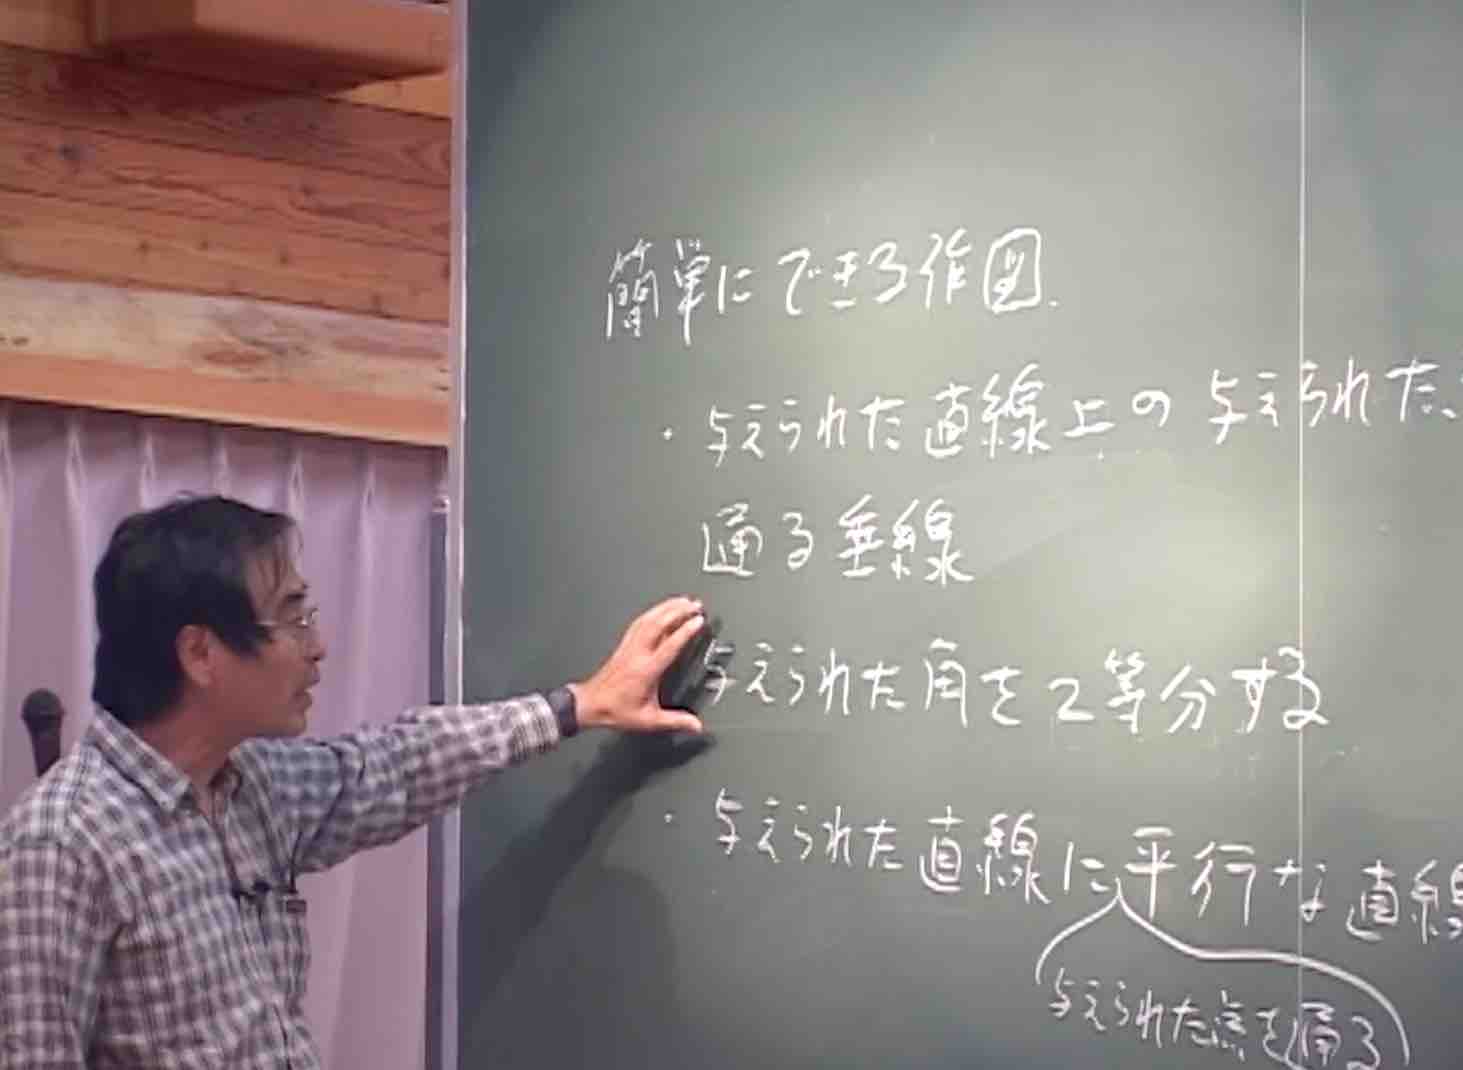 簡単にできる作図.
・与えられた直線上の与えられた
通る垂線
与えられた角を2等分する
・与えられた直線に平行な直線
与えられた点を通る